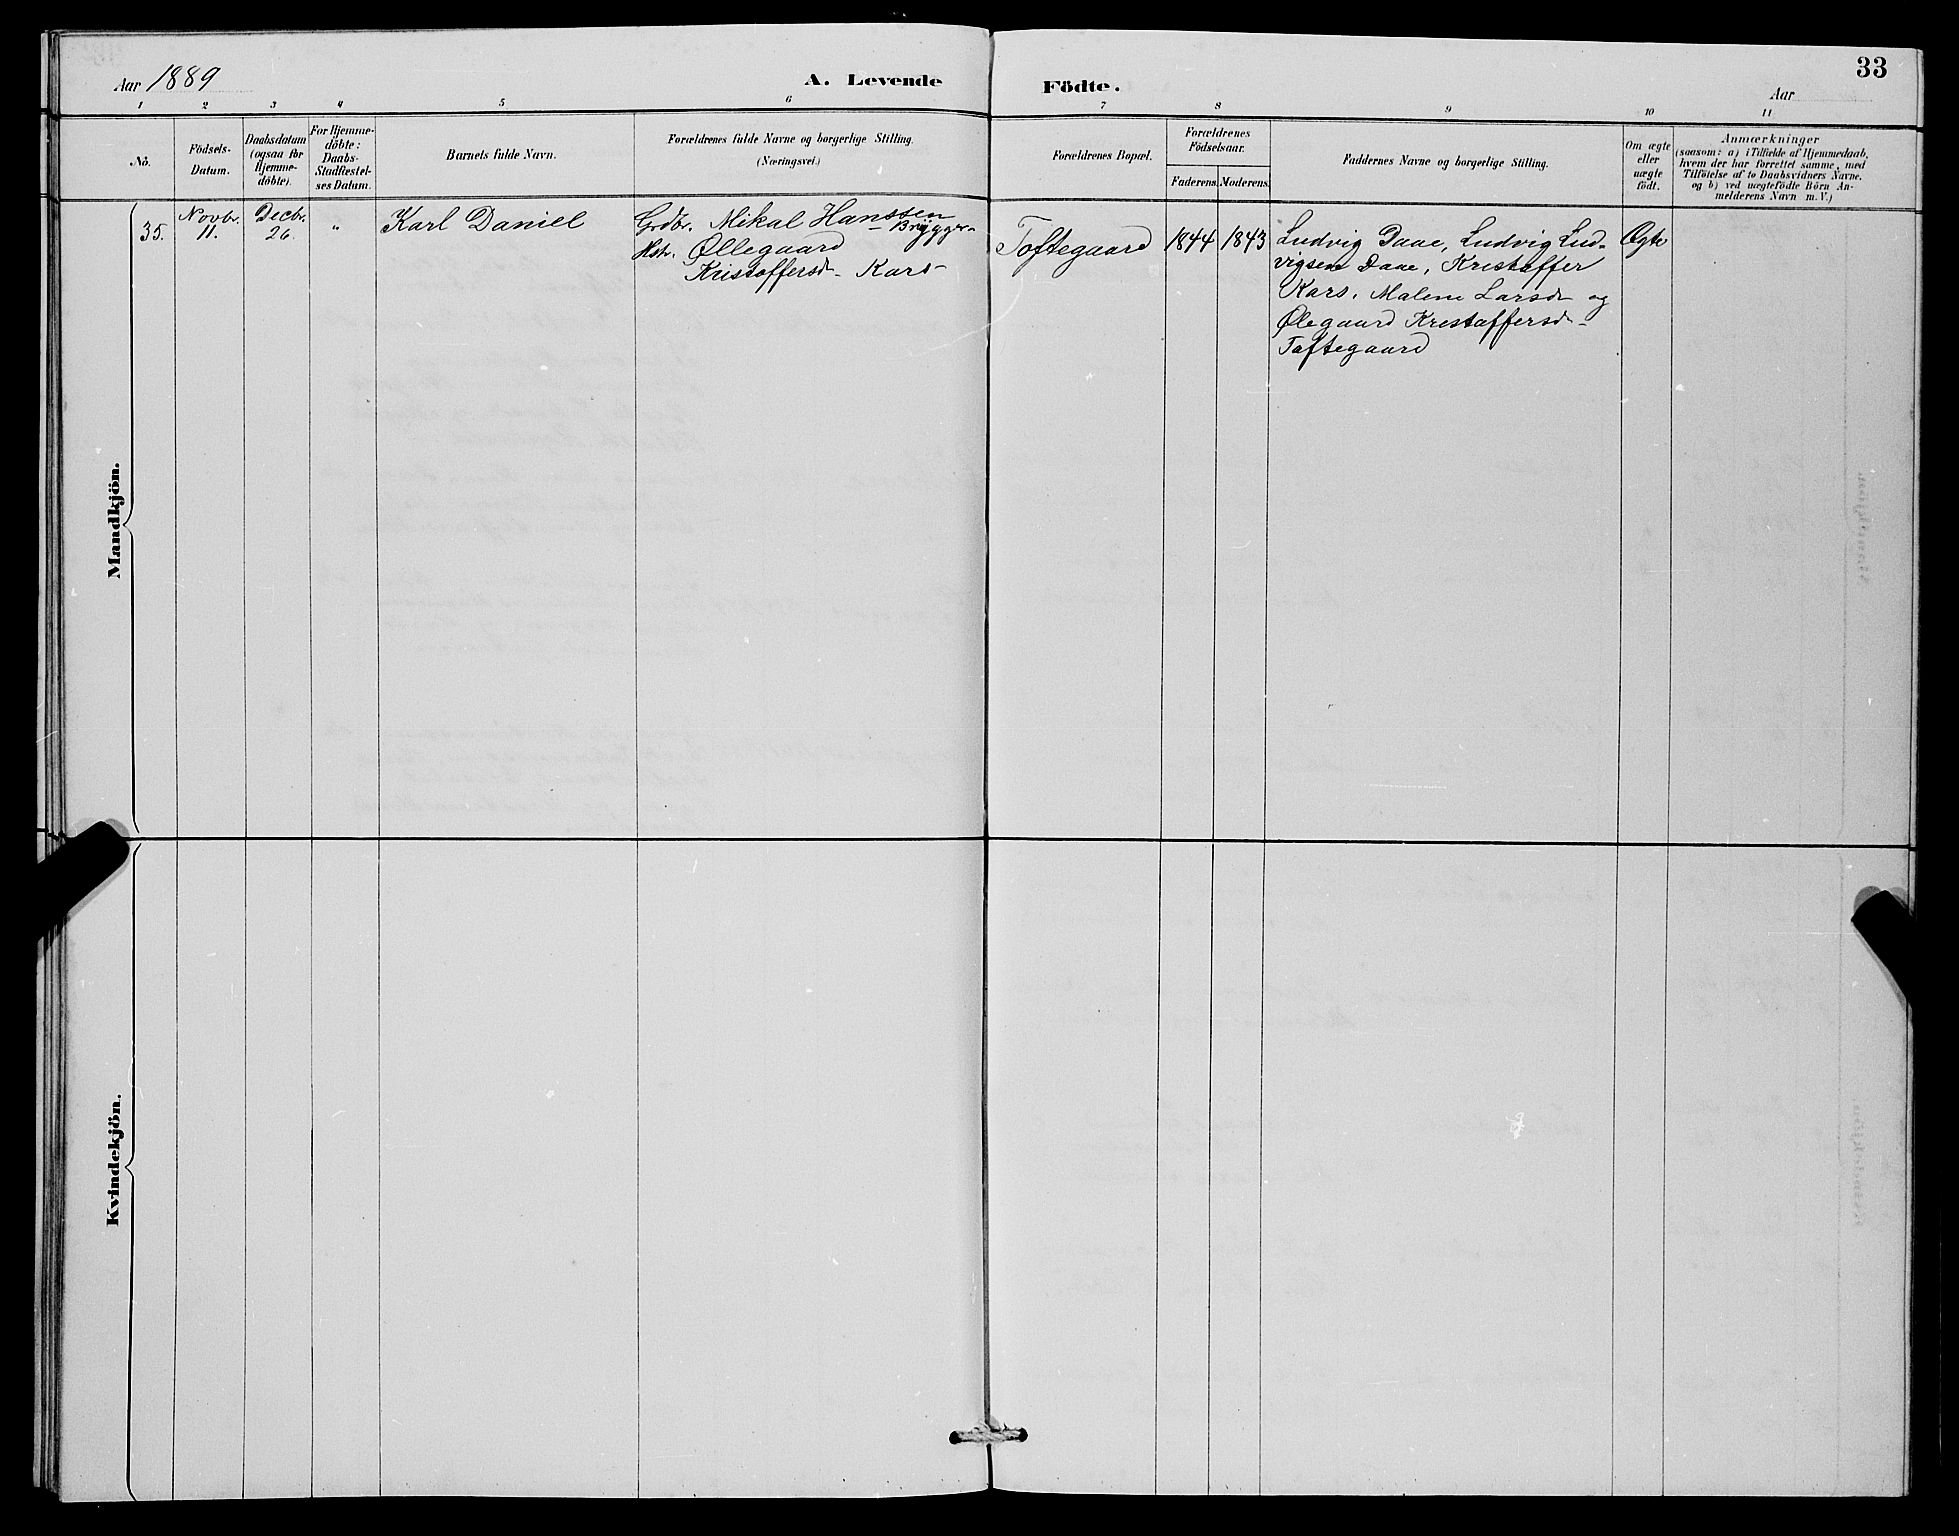 Aar 1889
A. Levende Födte.
33
Aar
1 2 3 4 5 6 7 8 9 10 11
No.
Födsels-
Datum.
Daabsdatum
(ogsaa for
Hjemme-
döbte).
For Hjemme-
döbte:
Daabs-
Stadfæstel-
ses Datum.
Barnets fulde Navn.
Forældrenes fulde Navne og borgerlige Stilling.
(Næringsvei.)
Forældrenes Bopæl.
Forældrenes
Födselsaar.
Faderens. Moderens.
Faddernes Navne og borgerlige Stilling.
Om ægte
eller
uægte
födt.
Anmærkninger
(saasom: a) i Tilfælde af Hjemmedaab,
hvem der har forrettet samme, med
Tilföielse af to Daabsvidners Navne,
og b) ved uægtefödte Börn An-
melderens Navn m. V.)
Mandkjön.
35.
Novbr.
11.
Decbr.
26.
"
Karl Daniel
Grdbr. Mikal Hanssen
– Brygger –
Hstr. Øllegaard
Kristoffersd – Kars –
Toftegaard
1844
1843
Ludvig Daae, Ludvig Lud-
vigsen Daae, Kristaffer
Kars, Malene Larsd – og
Ølegaard Kristaffersd –
Taftegaard
Ægte
Kvindekjön.